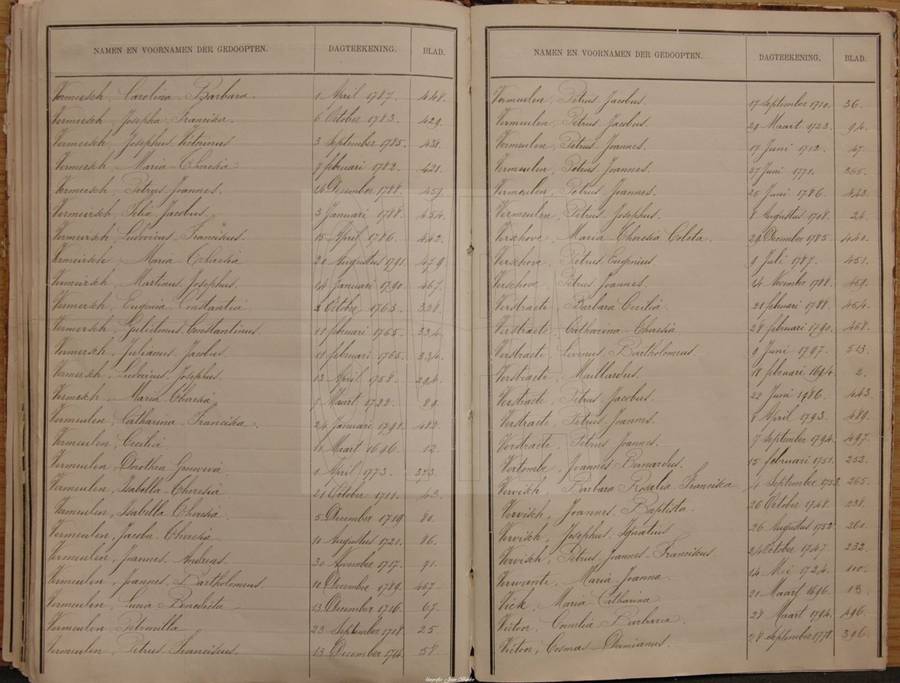 NAMEN EN VOORNAMEN DER GEDOOPTEN. DAGTEEKENING. BLAD.
Vermeersch, Carolina Barbara. 1 April 1787. 448.
Vermersch, Josepha Francisca. 6 October 1783. 429.
Vermersch, Josephus Victorinus 3 September 1785. 438.
Vermersch, Maria Theresia 7 februari 1782. 421.
Vermersch, Petrus Joannes. 16 December 1788. 457.
Vermeersch, Felix Jacobus. 3 Januari 1788. 454.
Vermeersch Ludovicus Franciscus. 15 April 1786. 442.
Vermeersch Maria Theresia 20 Augustus 1791. 479
Vermeersch, Martinus Josephus. 14 Januari 1790. 467.
Vermersch, Eugenia Constantia 2 October 1763. 328.
Vermersch, Gulielmus Constantinus 18 februari 1765. 334.
Vermersch, Julianus Jacobus. 18 februari 1765. 334.
Vermersch, Ludovicus Josephus. 13 April 1758. 294.
Vermersch, Maria Theresia. Maart 1722. 88.
Vermeulen, Catharina Francisca. 24 Januari 1791. 482.
Vermeulen, Cecilia. Maart 1696. 12.
Vermeulen, Dorothea Genoveva 1 April 1773. 373.
Vermeulen, Isabella Theresia 21 October 1711. 43.
Vermeulen, Isabella Theresia. 5 December 1719. 80.
Vermeulen, Jacoba Theresia 10 Augustus 1721. 86.
Vermeulen, Joannes Andreas. 30 November 1717. 71.
Vermeulen, Joannes Bartholomeus. 10 December 1789. 467.
Vermeulen, Livina Benedicta 13 December 1716. 67.
Vermeulen, Petronilla 23 September 1708. 25.
Vermeulen, Petrus Franciscus. 13 December 1714. 58.
NAMEN EN VOORNAMEN DER GEDOOPTEN. DAGTEEKENING. BLAD.
Vermeulen, Petrus Jacobus. 17 September 1710. 36.
Vermeulen, Petrus Jacobus. 29 Maart 1723. 94.
Vermeulen, Petrus Joannes. 17 Juni 1712. 47.
Vermeulen, Petrus Joannes. 27 Juni 1771. 365.
Vermeulen, Petrus Joannes. 26 Juni 1786. 443.
Vermeulen, Petrus Josephus. 8 Augustus 1708. 24.
Verschove, Maria Theresia Coleta. 29 December 1785. 440.
Verschove, Petrus Eugenius. 9 Juli 1787. 451.
Verschove, Petrus Joannes. 14 November 1788. 459.
Verstraete, Barbara Cecilia 21 februari 1788. 454.
Verstraete, Catharina Theresia 28 februari 1790. 468.
Verstraete, Livinus Bartholomeus 9 Juni 1797. 513.
Verstraete, Maillardus. 18 februari 1694. 2.
Verstraete, Petrus Jacobus. 22 Juni 1786. 443.
Verstraete, Petrus Joannes. April 1793. 489.
Verstraete, Petrus Joannes. 7 September 1794. 497.
Vertombe, Joannes Bernardus. 15 februari 1751. 252.
Vervisch, Barbara Rosalia Francisca September 1753. 265.
Vervisch, Joannes Baptista. 26 October 1748. 238.
Vervisch, Josephus Ignatius. 26 Augustus 1752. 260.
Vervisch, Petrus Joannes Franciscus 24 October 1747. 232.
Verwante, Maria Joanna. 14 Mei 1724. 100.
Vick, Maria Catharina 21 Maart 1696. 13.
Victor, Cornelia Barbara. 27 Maart 1794. 496.
Victor, Cosmas Damianus. 28 September 1775. 386.